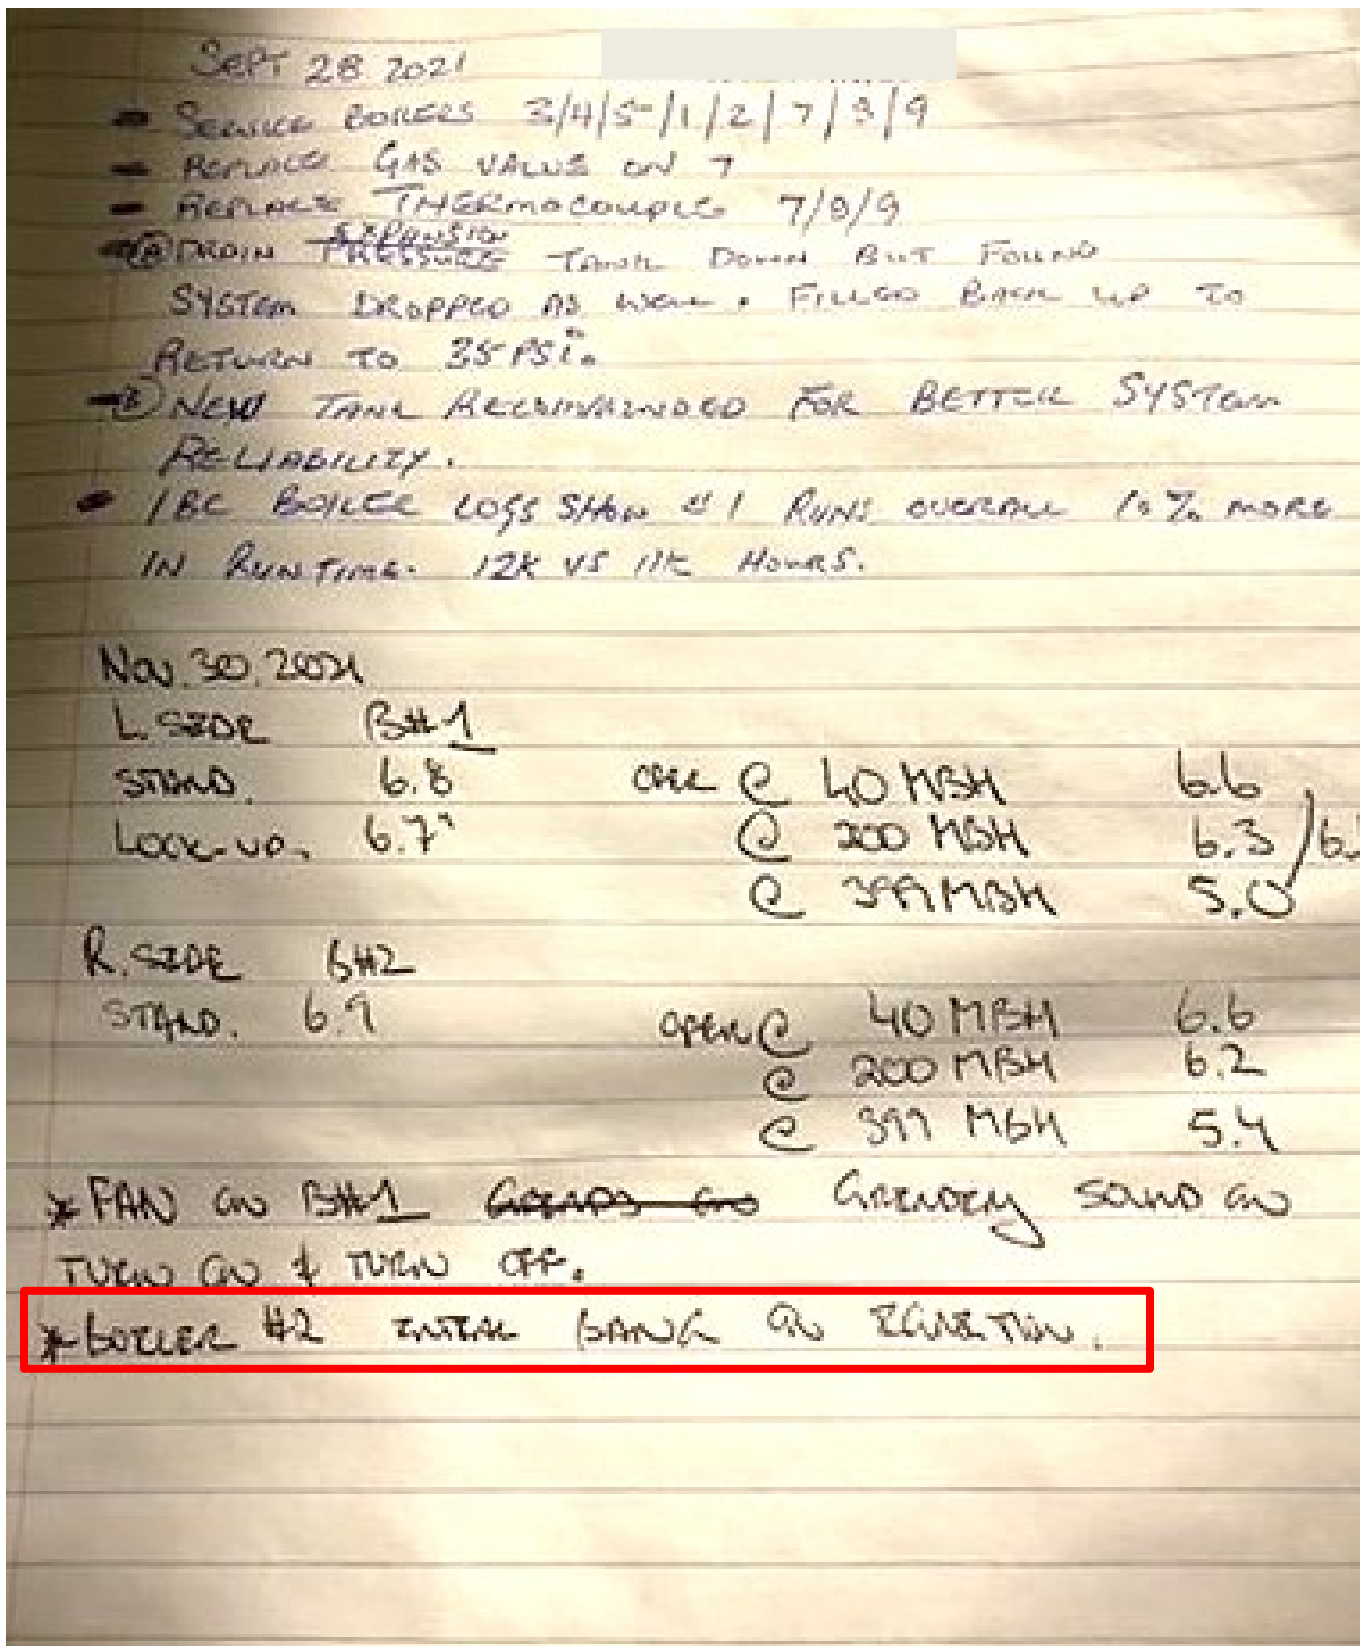 SEPT 28 2021
- SERVICE BOILERS 3/4/5/1/2/7/8/9
- REPLACE GAS VALVE ON 7
- REPLACE THERMOCOUPLE 7/8/9
EXPANSION
- (A) DRAIN PRESSURE TANK DOWN BUT FOUND
SYSTEM DROPPED AS WELL. FILLED BACK UP TO
RETURN TO 35 PSI.
- (B) NEW TANK RECOMMENDED FOR BETTER SYSTEM
RELIABILITY.
- IBC BOILER LOGS SHOW #1 RUNS OVERALL 10% MORE
IN RUNTIME. 12K VS 11K HOURS.
NOV. 30. 2021
L. SIDE B#1
STAND. 6.8 OPEN @ 40 MBH 6.6
LOCK-UP. 6.7" @ 200 MBH 6.3 /6.
@ 399 MBH 5.0
R. SIDE B#2
STAND. 6.9 OPEN @ 40 MBH 6.6
@ 200 MBH 6.2
@ 399 MBH 5.4
* FAN ON B#1 GRINDING SOUND ON
TURN ON & TURN OFF.
* BOILER #2 INITIAL BANG ON IGNITION.